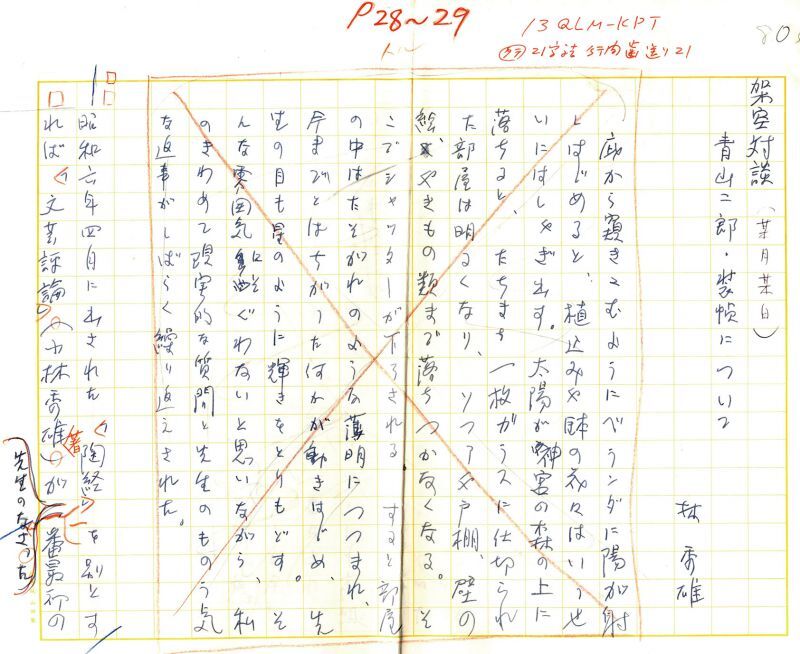 P28~29
トル
13QLM-KPT
21字詰 行間歯送り21
80
架空対談(某月某日)
青山二郎・装幀について
林 秀雄
庇から窺きこむようにベランダに陽が射
しはじめると、植込みや鉢の花々はいっせ
いにはしゃぎ出す。太陽が神宮の森の上に
落ちると、たちまち一枚ガラスに仕切られ
た部屋は明るくなり、ソファや戸棚、壁の
絵、やきもの類まで落ちつかなくなる。そ
こでシャッターが下ろされる すると部屋
の中はたそがれのような薄明につつまれ、
今までとはちがったなにかが動きはじめ、先
生の目も星のように輝きをとりもどす。そ
んな雰囲気にそぐわないと思いながら、私
のきわめて現実的な質問と先生のものう気
な返事がしばらく繰り返えされた。
昭和六年四月に出された〈陶経〉を別とす
れば〈文芸評論〉(小林秀雄著)が一番最初の
先生のなさった